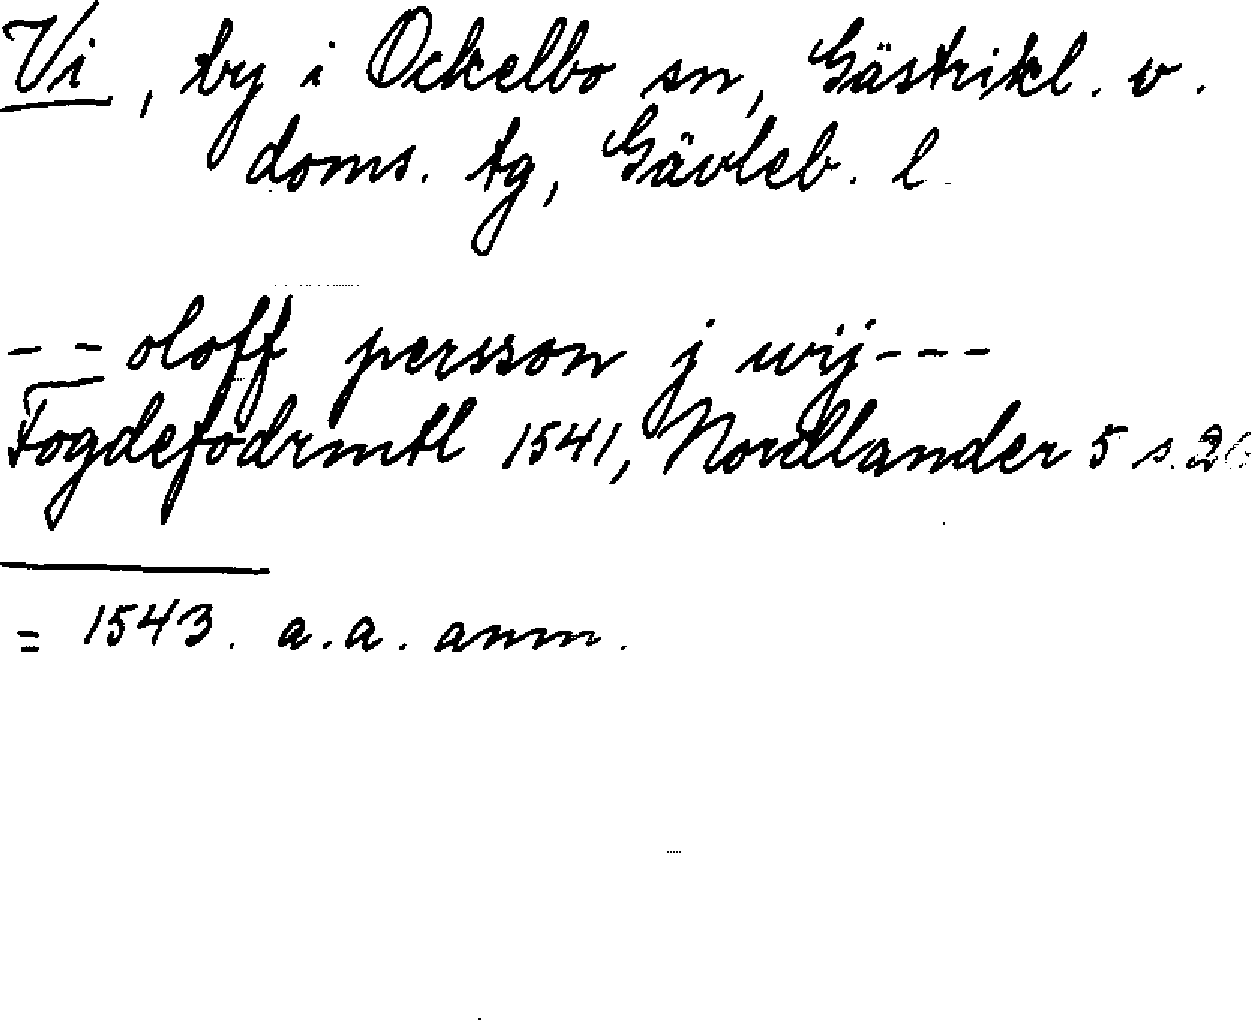 Vi, by i Ockelbo sn, Gästrikl. v.
doms. tg, Gävleb. l.
– – oloff persson j wij – – –
Fogdefodrmtl 1541, Nordlander 5 s. 26
= 1543. a. a. anm.